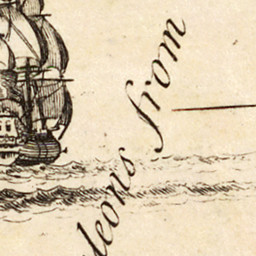 leons from